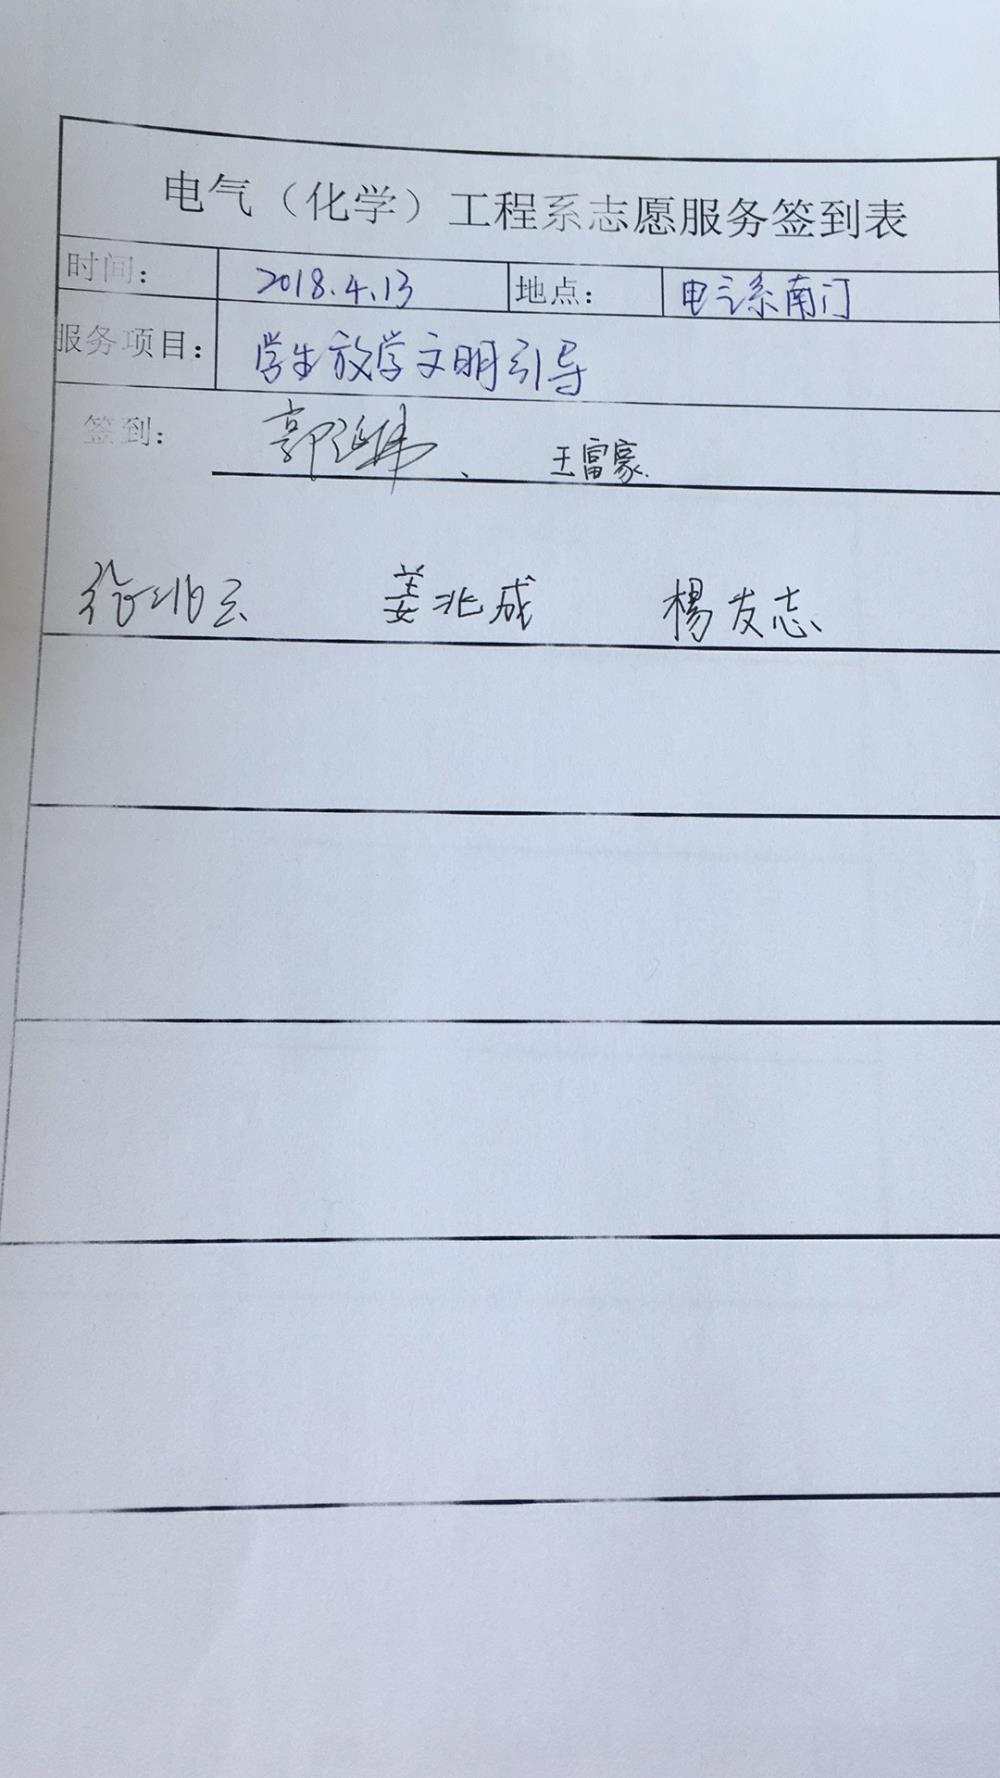 电气（化学）工程系志愿服务签到表
时间： 2018.4.13 地点： 电气系南门
服务项目： 学生放学文明引导
签到： 郭 王富豪
姜兆成 杨友志